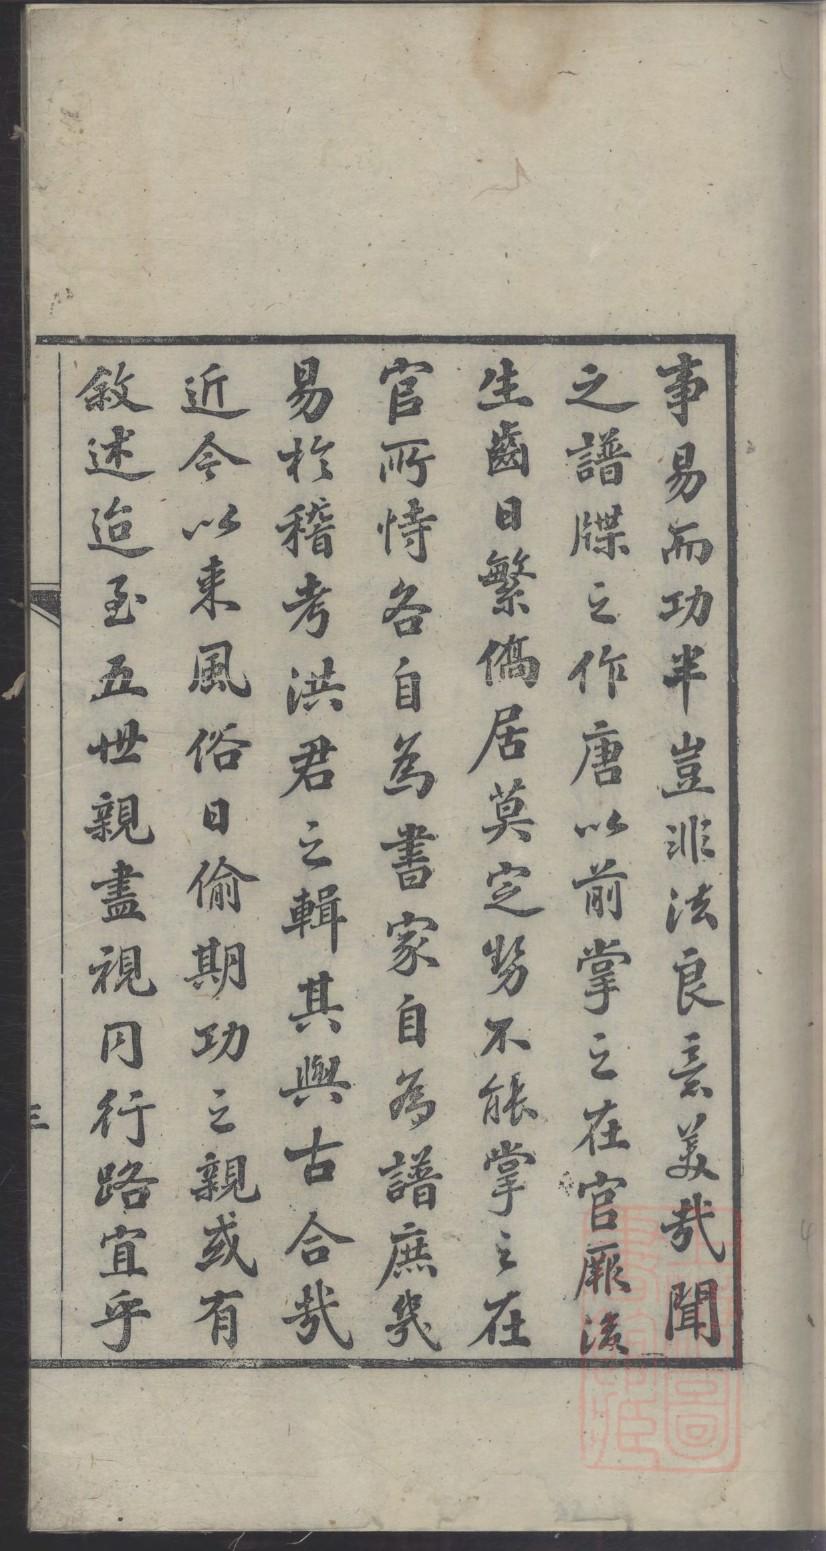 事易而功半豈非法良意美哉聞
之譜牒之作唐以前掌之在官厥後
生齒日繁僑居莫定勢不能掌之在
官所恃各自為書家自為譜庶幾
易於稽考洪君之輯其與古合哉
近今以來風俗日偷期功之親或有
敘述迨至五世親盡視同行路宜乎
三